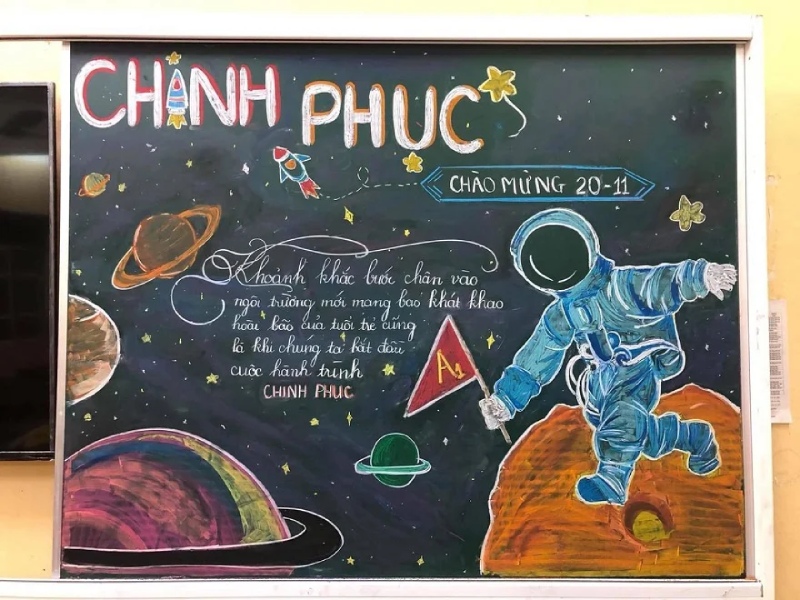 CHINH PHUC
CHÀO MỪNG 20-11
Khoảnh khắc bước chân vào
ngôi trường mới mang bao khát khao
hoài bão của tuổi trẻ cũng
là khi chúng ta bắt đầu
cuộc hành trình
CHINH PHUC
A1